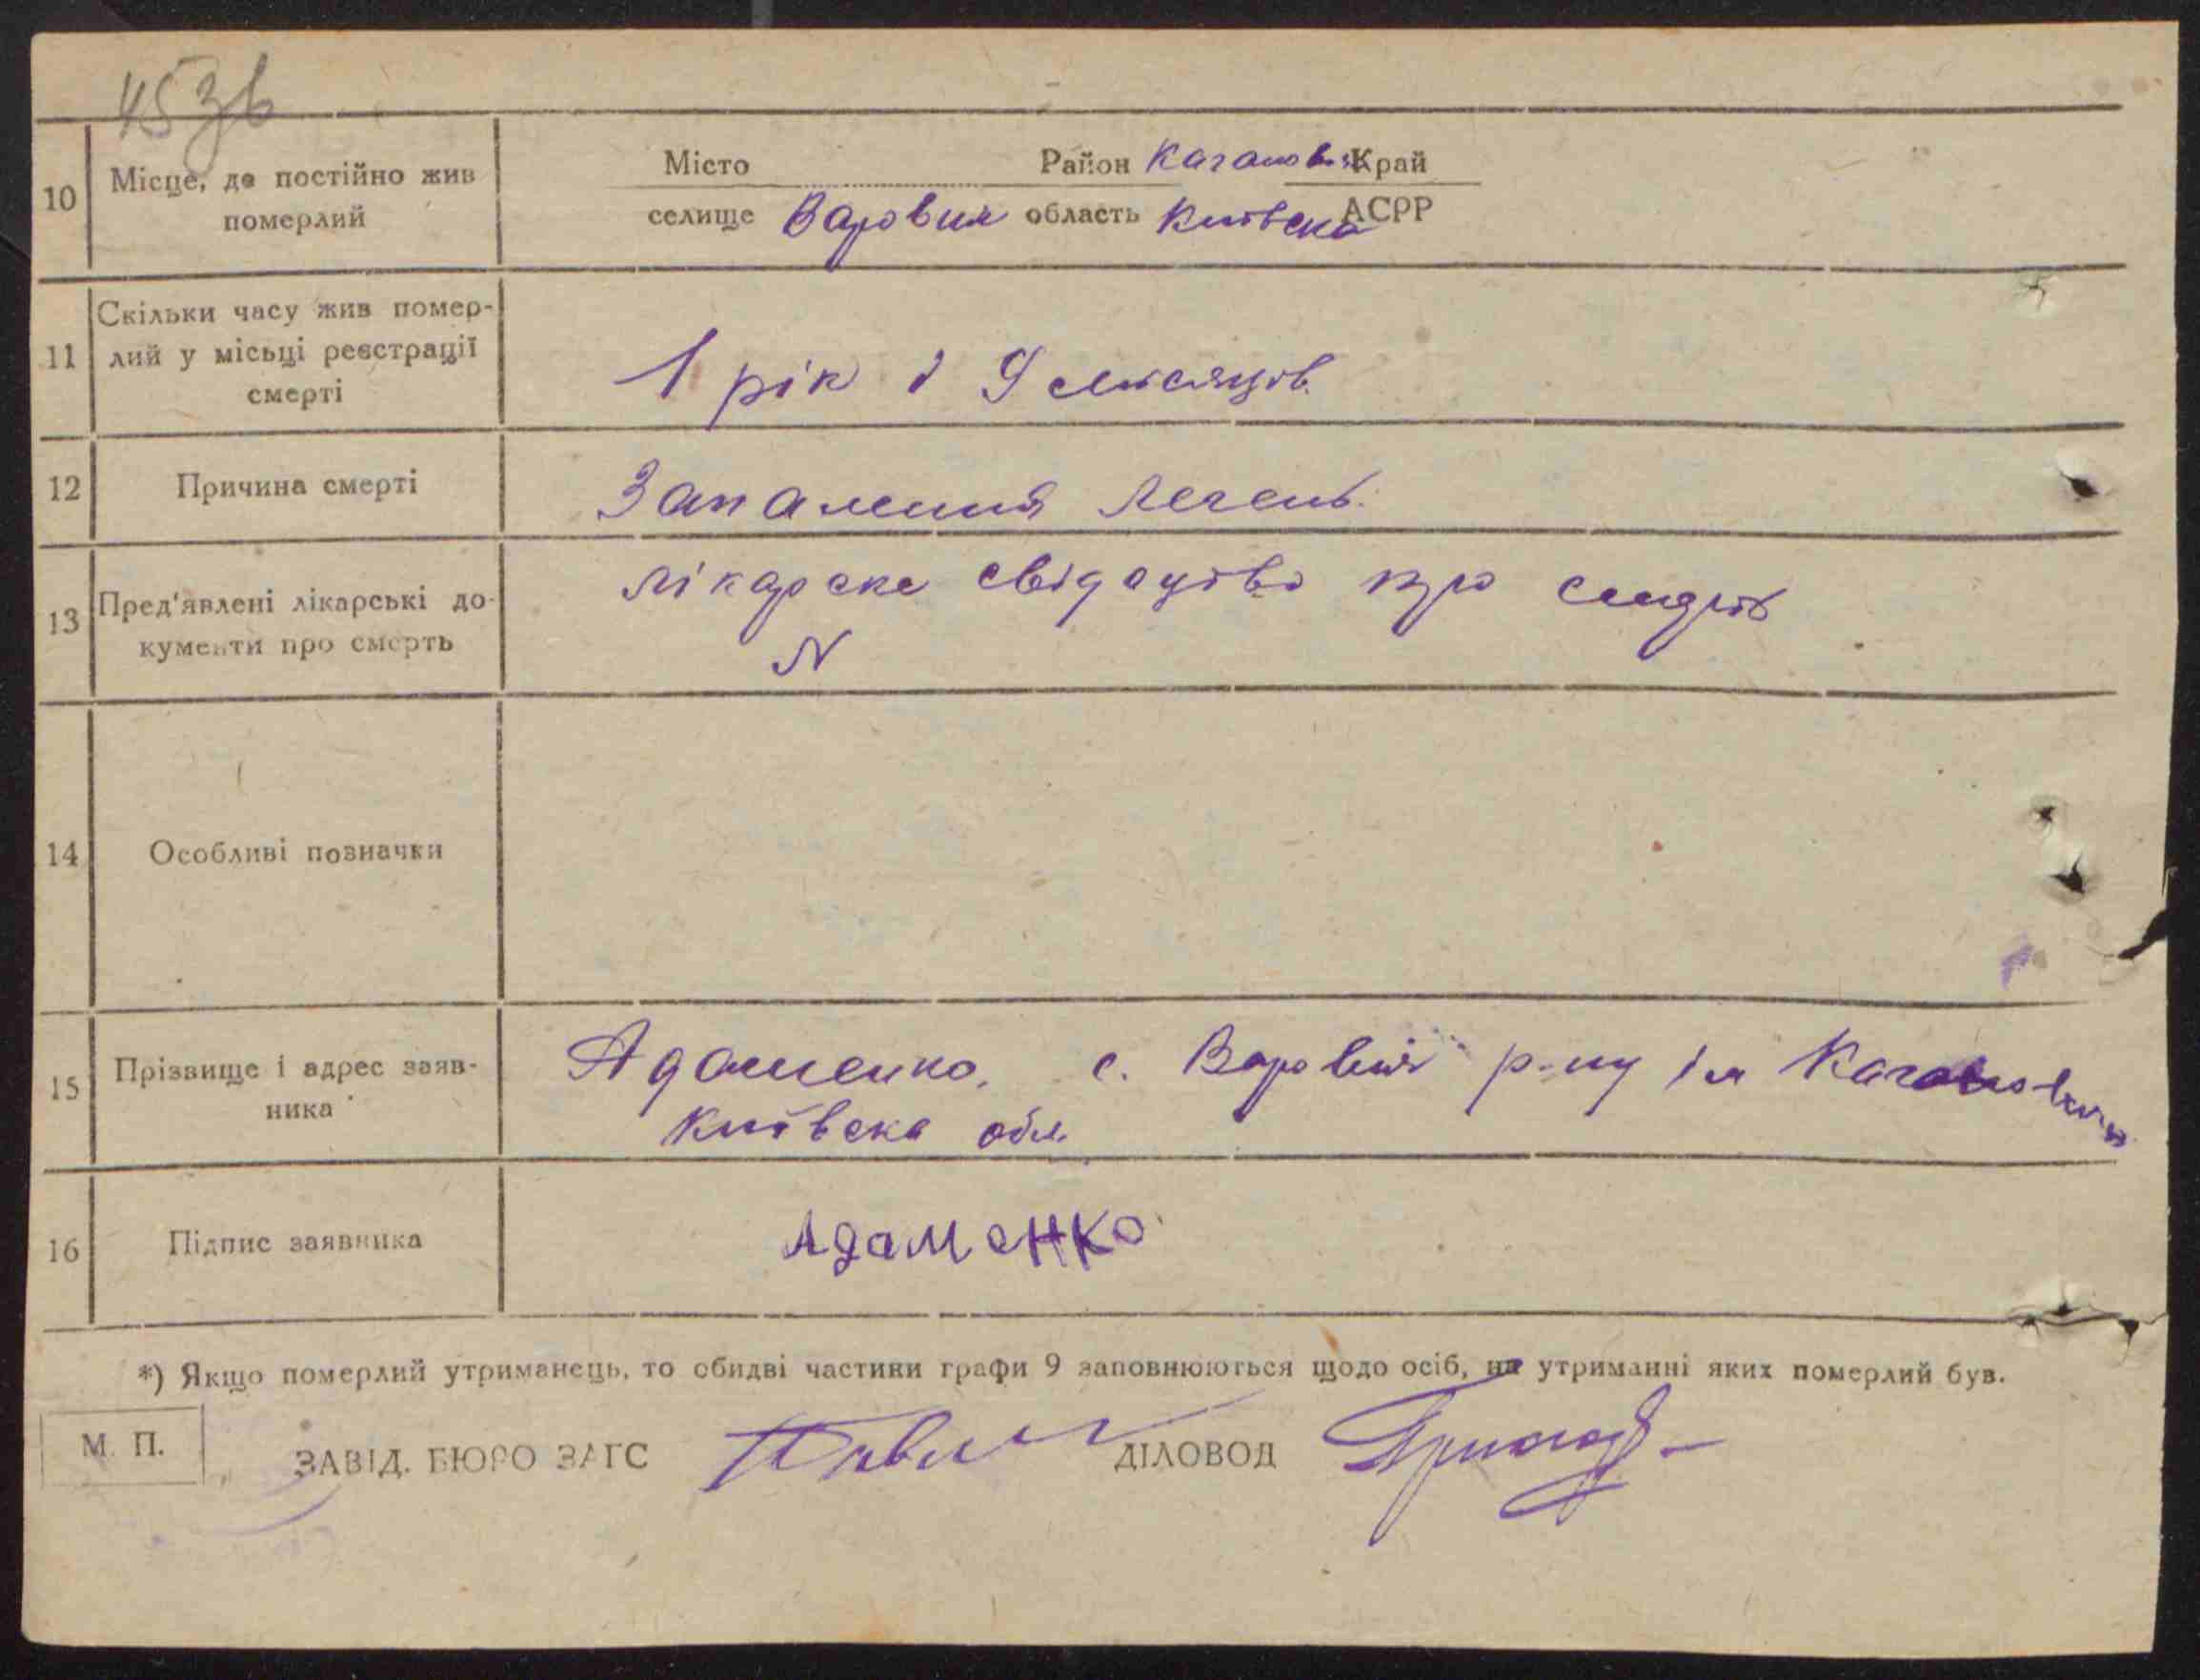 45зв
10 Місце, де постійно жив померлий
Місто Район Каганов. Край
селище Варовия область Київська АСРР
11 Скільки часу жив помер-
лий у місьці реєстрації
смерті
1 рік і 9 місяців.
12 Причина смерті
Запалення легень.
13 Пред'явлені лікарські до-
кументи про смерть
лікарске свідоцтво про смерть
N
14 Особливі позначки
15 Прізвище і адрес заяв-
ника
Адаменко, с. Варовня р-ну ім Кагановича
Київска обл.
16 Підпис заявника
Адаменко
*) Якщо померлий утриманець, то обидві частини графи 9 заповнюються щодо осіб, на утриманні яких померлий був.
М. П.
ЗАВІД. БЮРО ЗАГС ДІЛОВОД